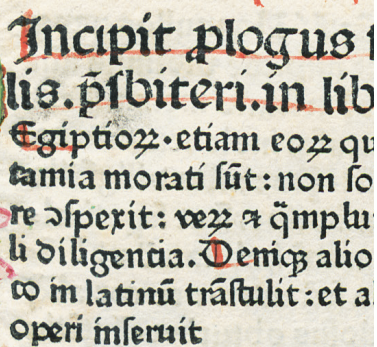 Incipit ꝓlogus
lis. p̄sbiteri. in lib
Egiptioꝝ. etiam eoꝝ qu
tamia morati sūt: non so
re ꝯspexit: veꝝ ⁊ q̄mplu
li diligencia. Deniqꝫ alio
co in latinū trāstulit: et a
operi inseruit